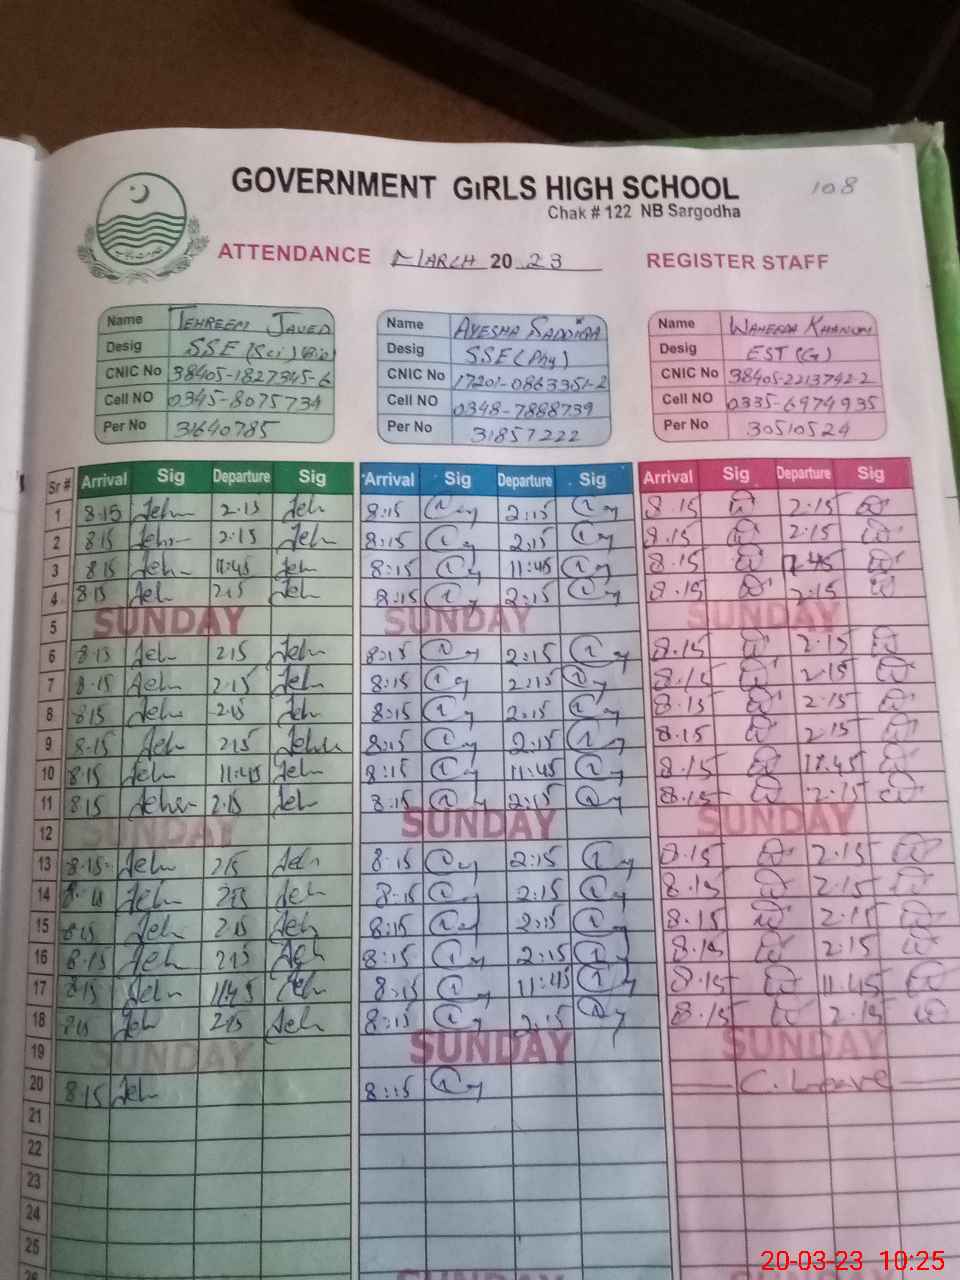 GOVERNMENT GiRLS HIGH SCHOOL
108
Chak # 122 NB Sargodha
ATTENDANCE MARCH 20 23 REGISTER STAFF
Name TEHREEM JAVED
Desig SSE (Sci) Bio
CNIC No 38405-1827345-6
Cell NO 0345-8075734
Per No 31640785
Name AYESHA SADDIQA
Desig SSE (Phy)
CNIC No 17201-0863351-2
Cell NO 0348-7888739
Per No 31857222
Name WAHEEDA KHANUM
Desig EST (G)
CNIC No 38405-2213742-2
Cell NO 0335-6974935
Per No 30510524
Sr # Arrival Sig Departure Sig Arrival Sig Departure Sig Arrival Sig Departure Sig
1 8:15 2:15 8:15 2:15 8.15 2.15
2 8:15 2:15 8:15 2:15 8.15 2.15
3 8:15 11:45 8:15 11:45 8.15 11.45
4 8:15 2:15 8:15 2:15 8.15 2.15
5 SUNDAY SUNDAY SUNDAY
6 8:15 2:15 8:15 2:15 8.15 2.15
7 8.15 2.15 8:15 2:15 8.15 2.15
8 8:15 2:15 8:15 2:15 8.15 2.15
9 8.15 2:15 8:15 2:15 8.15 2.15
10 8:15 11:45 8:15 11:45 8.15 11.45
11 8:15 2:15 8:15 2:15 8.15 2.15
12 SUNDAY SUNDAY SUNDAY
13 8.15 2:15 8:15 2:15 8.15 2.15
14 2:15 8:15 2:15 8.15 2.15
15 8:15 2:15 8:15 2:15 8.15 2.15
16 8.15 2:15 8:15 2:15 8.15 2.15
17 8:15 11:45 8:15 11:45 8.15 11.45
18 8:15 2:15 8:15 2:15 8.15 2.15
19 SUNDAY SUNDAY SUNDAY
20 8.15 8:15 C. Leave
21
22
23
24
25
26
SUNDAY
20-03-23 10:25